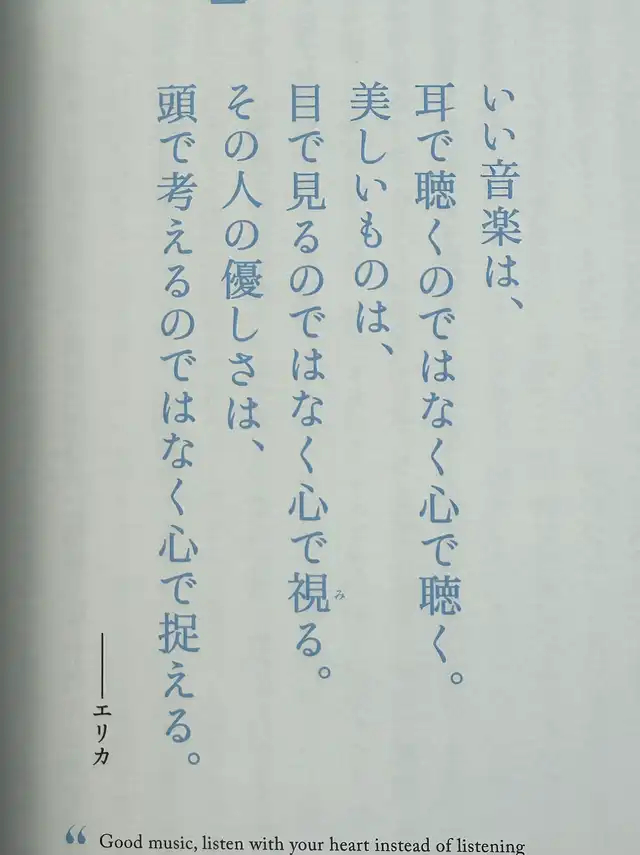 いい音楽は、
耳で聴くのではなく心で聴く。
美しいものは、
目で見るのではなく心で視る。
み
その人の優しさは、
頭で考えるのではなく心で捉える。
——エリカ
“ Good music, listen with your heart instead of listening